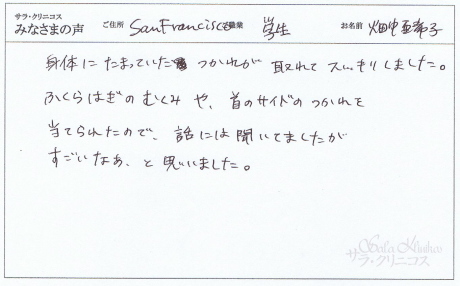 サラ・クリニコス
みなさまの声 ご住所 San Francisco 職業 学生 お名前 畑中亜希子
身体にたまっていた つかれが 取れて スッキリしました。
ふくらはぎの むくみ や、首のサイドの つかれを
当てられたので、話には聞いてましたが
すごいなあ、と思いました。
Sala Klinikos
サラ・クリニコス